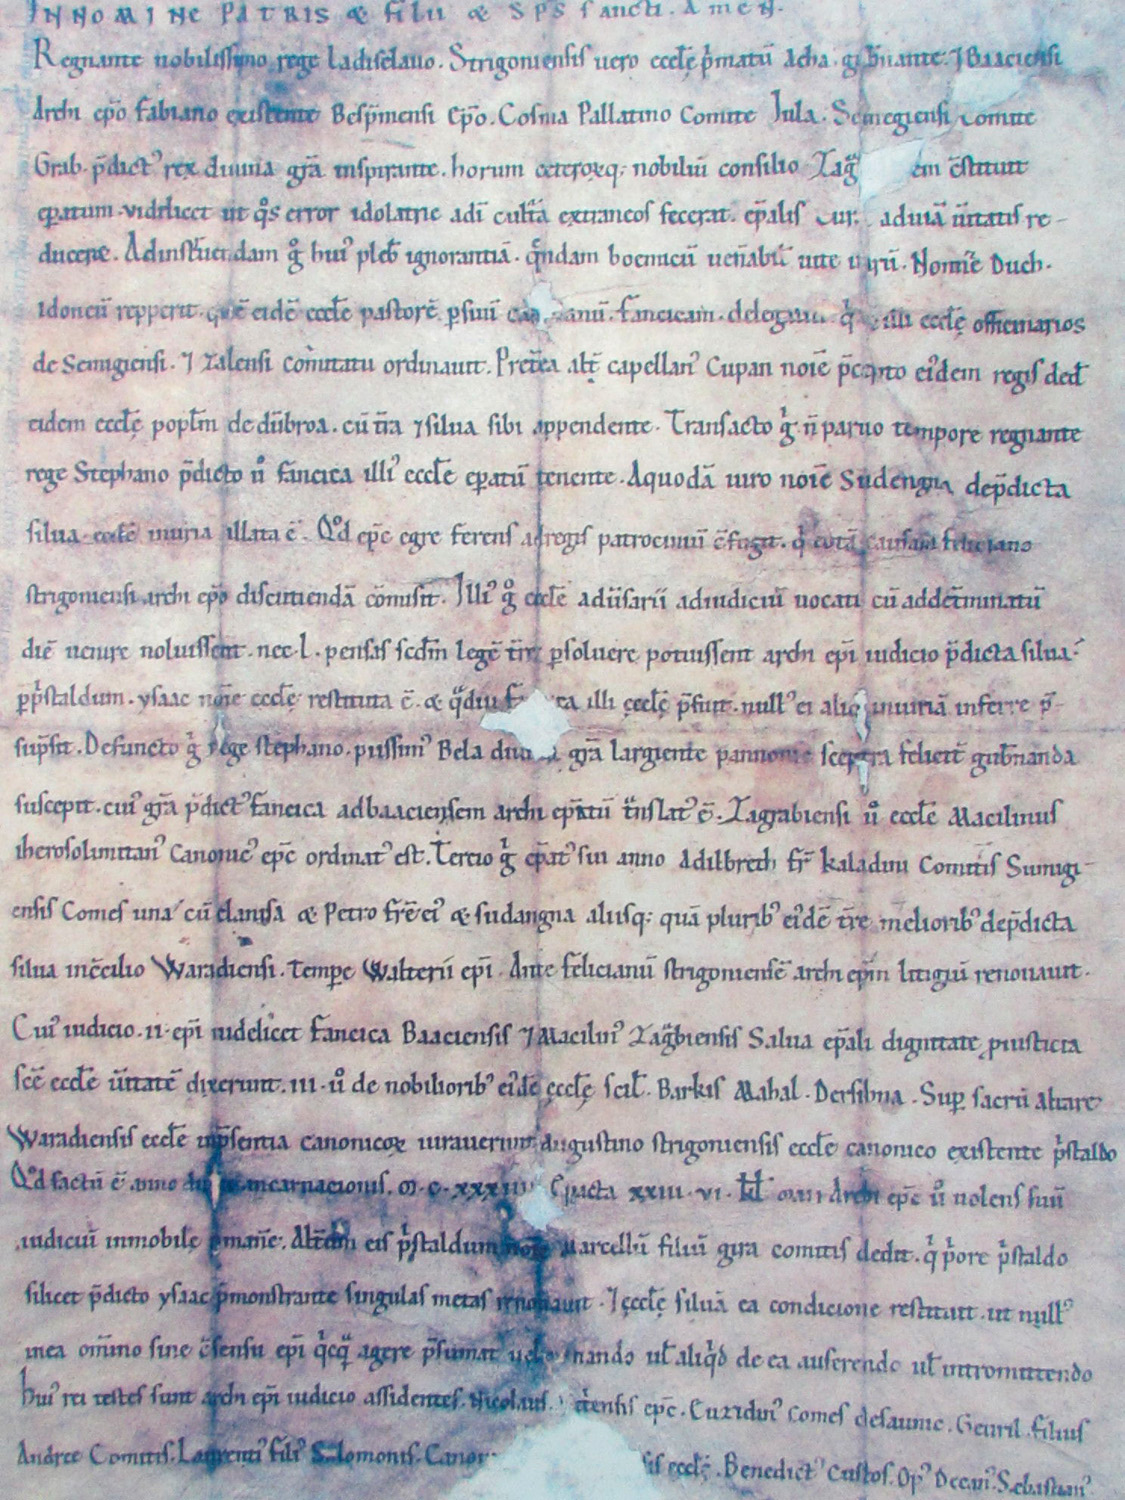 IN NOMINE PATRIS & filii & SPS sancti. AmeN.
Regnante nobilissimo rege ladisclauo. Strigoniensis uero eccłe p̍matū Acha. gub̄nante. ⁊ Baaciensi
Archi ep̄o fabiano existente Besp̄mensi Ep̄o. Cosma Pallatino Comite Iula. Simegiensi comite
Grab. p̄dictꝰ rex diuina gr̄a inspirante. horum ceteroꝝq; nobiliū consilio Zag em c̄stituit
ep̄atum. videlicet ut qͦs error idolatrie a di cult̄a extraneos fecerat. ep̄alis cur. ad uiā ūitatis re-
ducere. Ad instr̄uendam gͦ huiꝰ pleb̄ ignorantiā. qͣndam boemicū uen̄abił uite uirū. Nomīe Duch.
Idoneū repperit. quē eidē eccłe pastorē. p̱ suū anū. fancicam. delegauit. q̍ illi eccłę officinarios
de Semigiensi. ⁊ zalensi com̄itatu ordinauit. Pret̄ea alt̄ capellanꝰ Cupan noīe p̄cepto eiꝰdem regis ded̄
eidem eccłę popl̄m de dūbroa. cū t̄ra ⁊ silua sibi appendente. Transacto g̍ n̄ paruo tempore regnante
rege Stephano p̄dicto ū fancica illiꝰ eccłe ep̱atū tenente. A quodā uiro noīe Sudengna de p̄dicta
silua eccłę iniuria illata ē. Qͦd ep̄c egre ferens ad regis patrociniū c̄fugit. q̍ totā causam feliciano
strigoniensi archi ep̄o discutiendā cōmisit. Illiꝰ gͦ eccłe adūsarii ad iudiciū uocati cū ad det̄minatū
diē uenire noluissent. nec. l. pensas scd̄m legē tr̄e p̱soluere potuissent archi ep̄i iudicio p̄dicta silua
p̱ p̍staldum. ysaac noīe eccłę restituta ē. & qͣdiu f ca illi eccłę p̄fuit. nullꝰ ei aliq̄ iniuriā inferre p̄-
sūpsit. Defuncto g̍ rege stephano. piissimꝰ Bela diuina gr̄a largiente pannonie sceptra feliciť gub̄nanda
suscepit. cuiꝰ gr̄a p̄dictꝰ fancica ad baaciensem archi ep̄atū tͣnslatꝰ ē. Zagrabiensi ū eccłe Macilinus
iherosolimitanꝰ Canonicꝰ ep̄c ordinatꝰ est. Tercio g̍ ep̄atꝰ sui anno Adilbreth fr̄ kaladini Comitis Simigi-
ensis Comes una cū clanisa & Petro fr̄e eiꝰ & sudangna aliisq; quā pluribꝰ eiꝰdē tr̄e melioribꝰ de p̄dicta
silua in c̄cilio Waradiensi. tempe Walterii ep̄i. Ante felicianū strigoniensē archi ep̄m litigiū renouauit.
Cuiꝰ iudicio. ii. ep̄i uidelicet fancica Baaciensis ⁊ Macilinꝰ Zagͣbiensis Salua ep̄ali dignitate p̱ iusticia
sc̄e eccłe ūitatē dixerunt. iii. ūͦ de nobilioribꝰ eiꝰdē eccłę scił. Barkis Mahal. Dersibna. Sup̱ sacrū altare
Waradiensis eccłe in p̄sentia canonicoꝝ iurauerunt Augustino strigoniensis eccłe canonico existente p̍staldo
Qͦd factū ē anno dn̄ice incarnacionis. M. C. xxxiiii Epacta xxiii. vi. kł maii Archi ep̄c ū nolens suū
iudiciū inmobile p̱manē. Alt̄um eis p̍staldum noīe Marcellū filiū gira comitis dedit. q̍ p̍ore p̍staldo
silicet p̄dicto ysaac p̄monstrante singulas metas renouauit. ⁊ eccłę siluā ea condicione restituit. ut nullꝰ
in ea om̄ino sine c̄sensu ep̄i q̍cqͣ agere p̄sumat nando uł aliq̍d de ea auferendo uł intromittendo
huiꝰ rei testes sunt archi ep̄i iudicio assidentes. Nicolaus. ensis ep̄c. Curidinꝰ Comes de saunic. Geuril. filius
Andree Comitis. Laurentiꝰ filiꝰ Salomonis. Canon sis eccłę. Benedictꝰ Custos. Opꝰ Decanꝰ. Sebastianꝰ